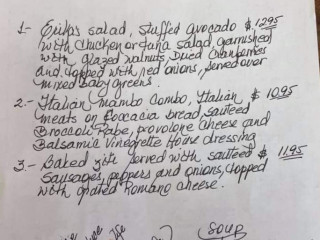 1.- Erika's salad, Stuffed avocado $ 12.95
with chicken or Tuna salad, garnished
with glazed walnuts, Dried Cranberries
and topped with red onions, served over
mixed Baby Greens.
2.- Italian Mambo Combo, Italian $ 10.95
meats on Foccacia bread sauteed
Broccoli Rabe, provolone cheese and
Balsamic Vinegrette House dressing
3.- Baked ziti served with sauteed $ 11.95
Sausages, peppers and onions, topped
with grated Romano cheese.
Soup